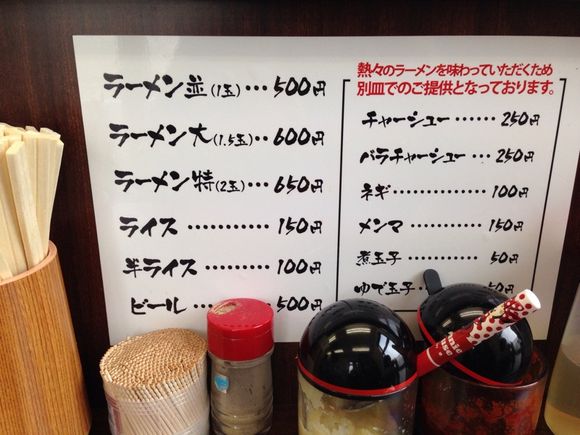 ラーメン並(1玉)…500円
ラーメン大(1.5玉)…600円
ラーメン特(2玉)…650円
ライス…………150円
半ライス…………100円
ビール……500円
熱々のラーメンを味わっていただくため
別皿でのご提供となっております。
チャーシュー……250円
バラチャーシュー…250円
ネギ…………100円
メンマ…………150円
煮玉子…………50円
ゆで玉子…50円